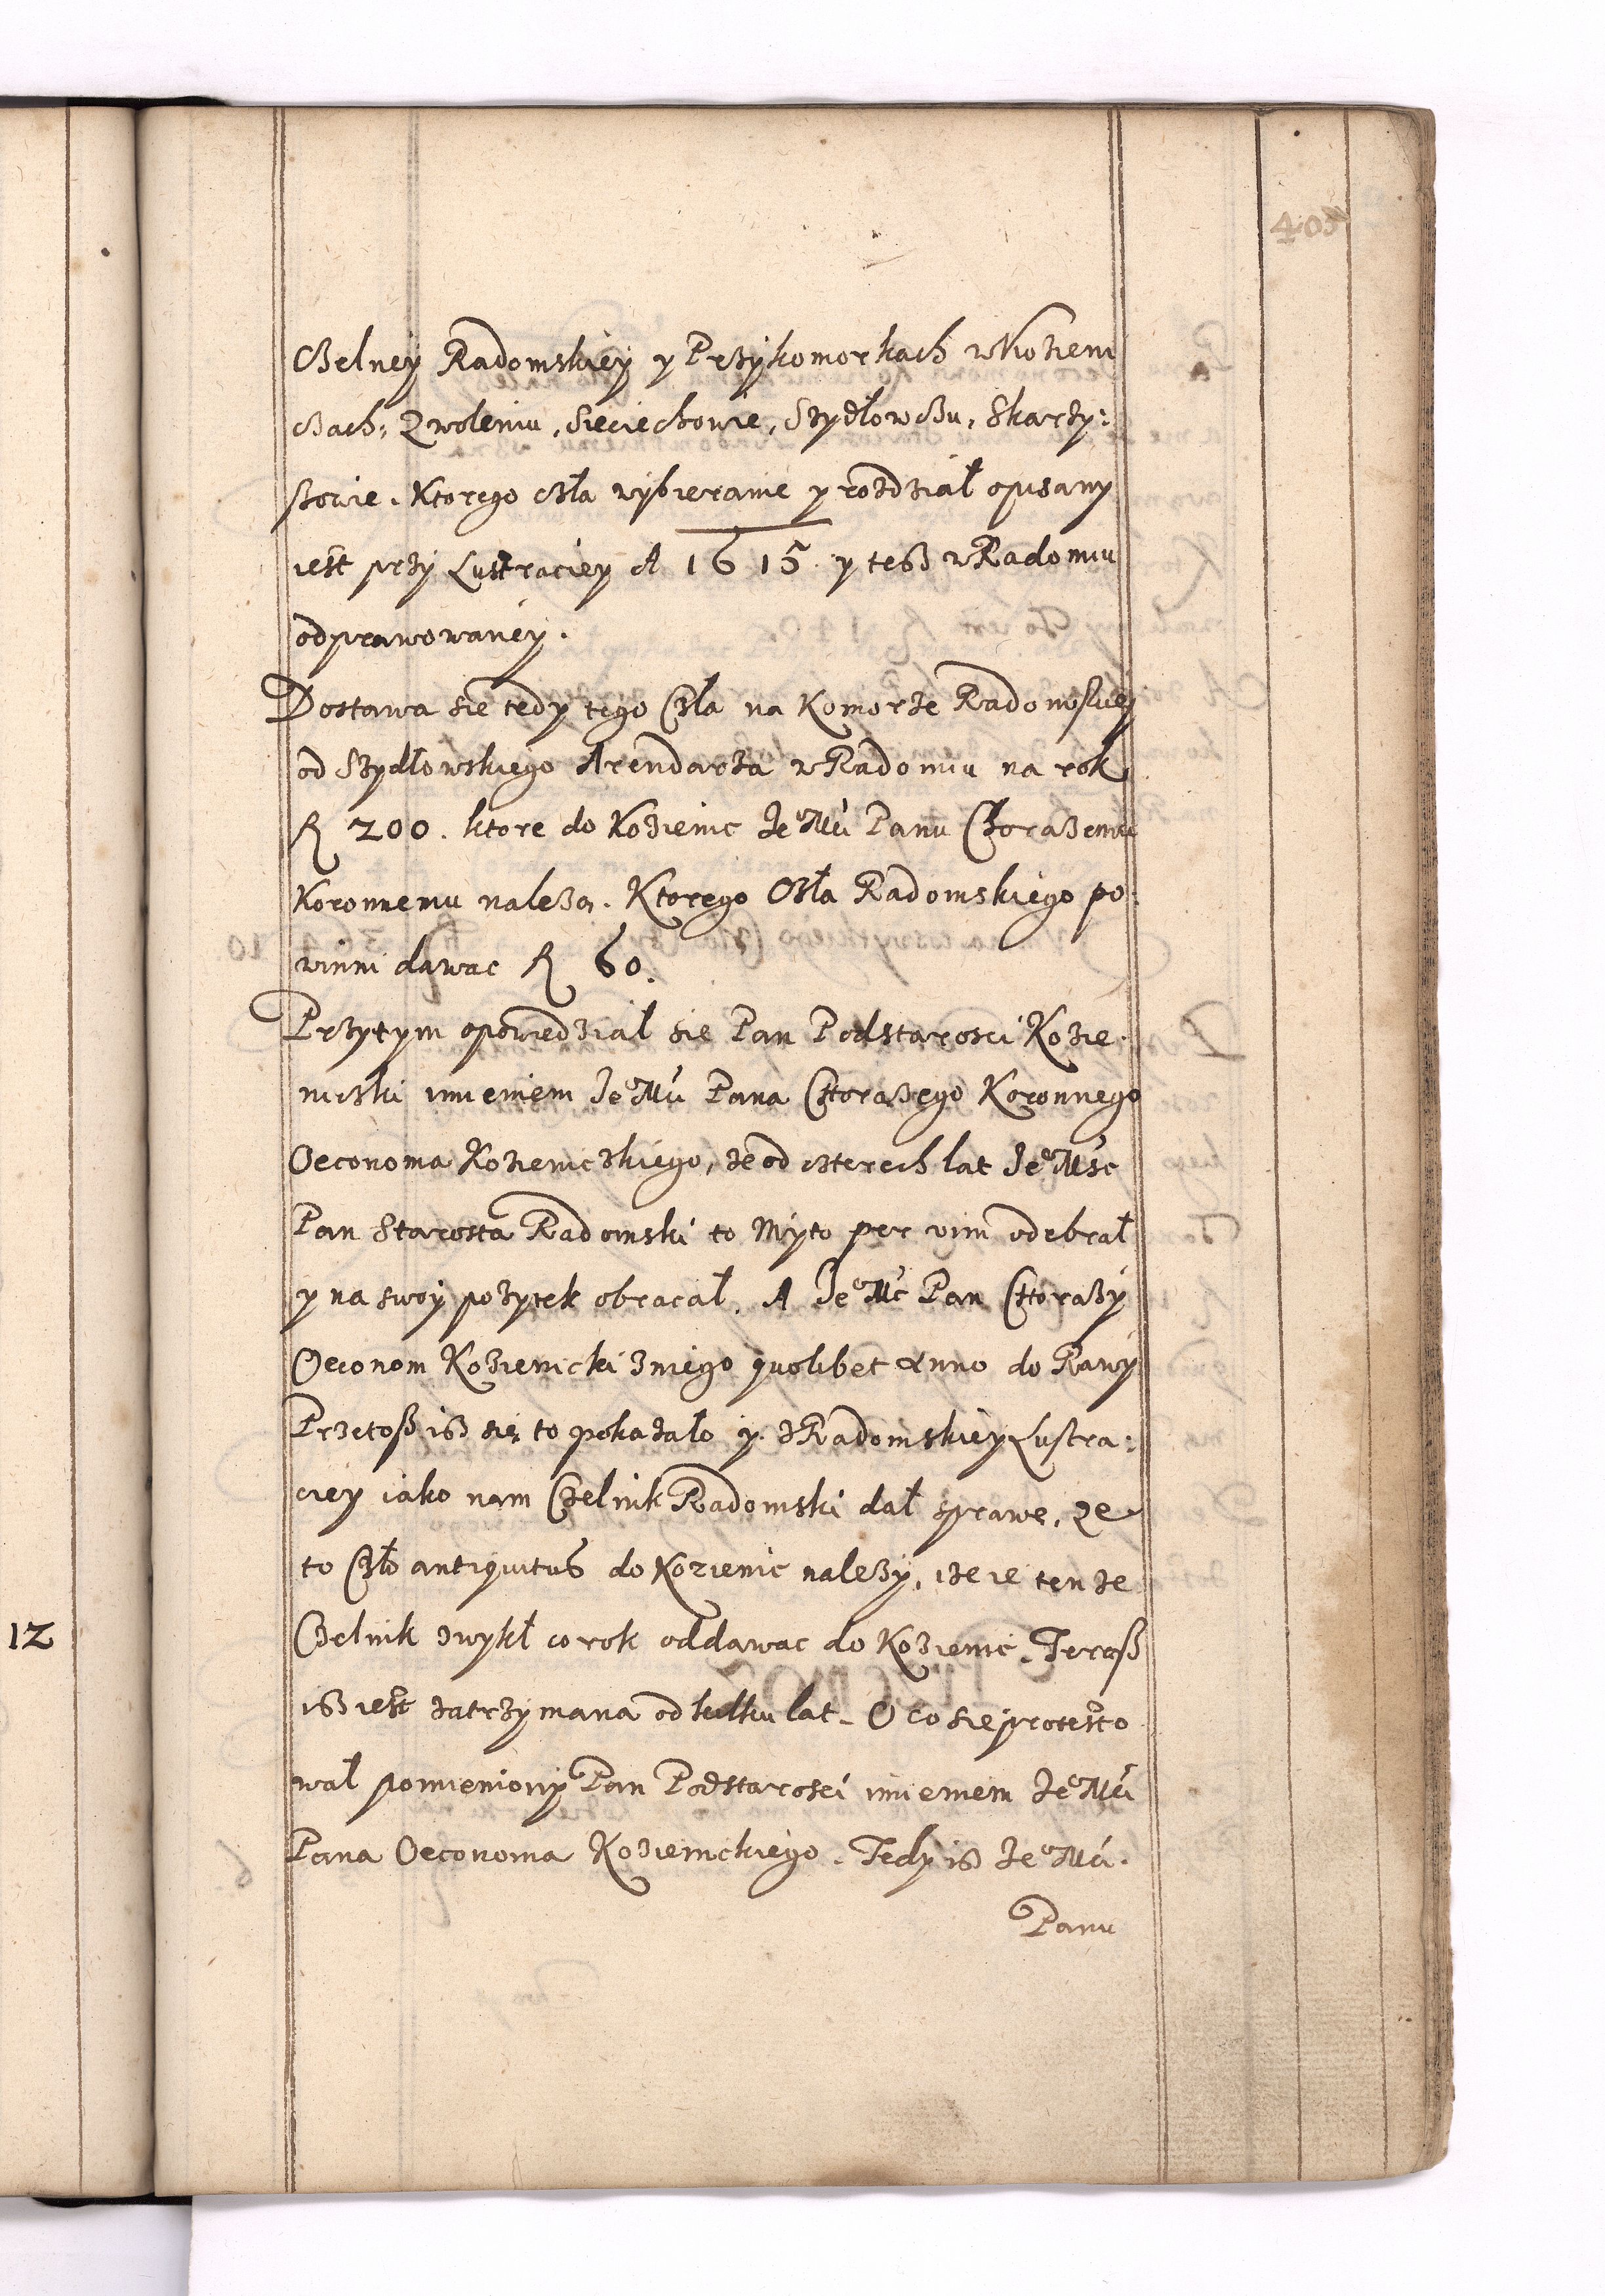 405
Czelney Radomskiey y Przykomorkach w Kozieni
czach: Zwoleniu, Sieciechowie, Szydłowczu, Skarzy:
szowie. Ktorego Czła wybieranie y rozdział opisany
iest przy Lustraciey A 1615 y tesz w Radomiu
odprawowaney.
Dostawa sie tedy tego Czła na Komorze Radomskiey
od Szydłowskiego Arendarza w Radomiu na rok
fl 200. ktore do Kozienic Je⁰ Mći Panu Chorążemu
Koronnemu należą. Ktorego Czła Radomskiego po:
winni dawac fl 60.
Przytym opowiedział sie Pan Podstarosci Kozie:
nicski imieniem Je⁰ Mći Pana Chorążego Koronnego
Oeconoma Kozienicskiego, że od czterech lat Je⁰ Msc
Pan Starosta Radomski to Myto per vim odebrał
y na swoy pozytek obracał. A Je⁰ Mć Pan Chorąży
Oeconom Kozienicki z niego quolibet Anno do Rawy
Przetosz isz się to pokazało y z Radomskiey Lustra:
ciey iako nam Czelnik Radomski dał sprawe, ze
to Czło antiquitus do Kozienic należy, i że ie tenże
Czelnik zwykł co rok oddawac do Kozienic. Terasz
isz iest zatrzymana od kilku lat. O co sie protesto
wał pomieniony Pan Podstarosci imieniem Je⁰ Mći
Pana Oeconoma Kozienickiego. Tedy isz Je⁰ Mći.
Panu
12